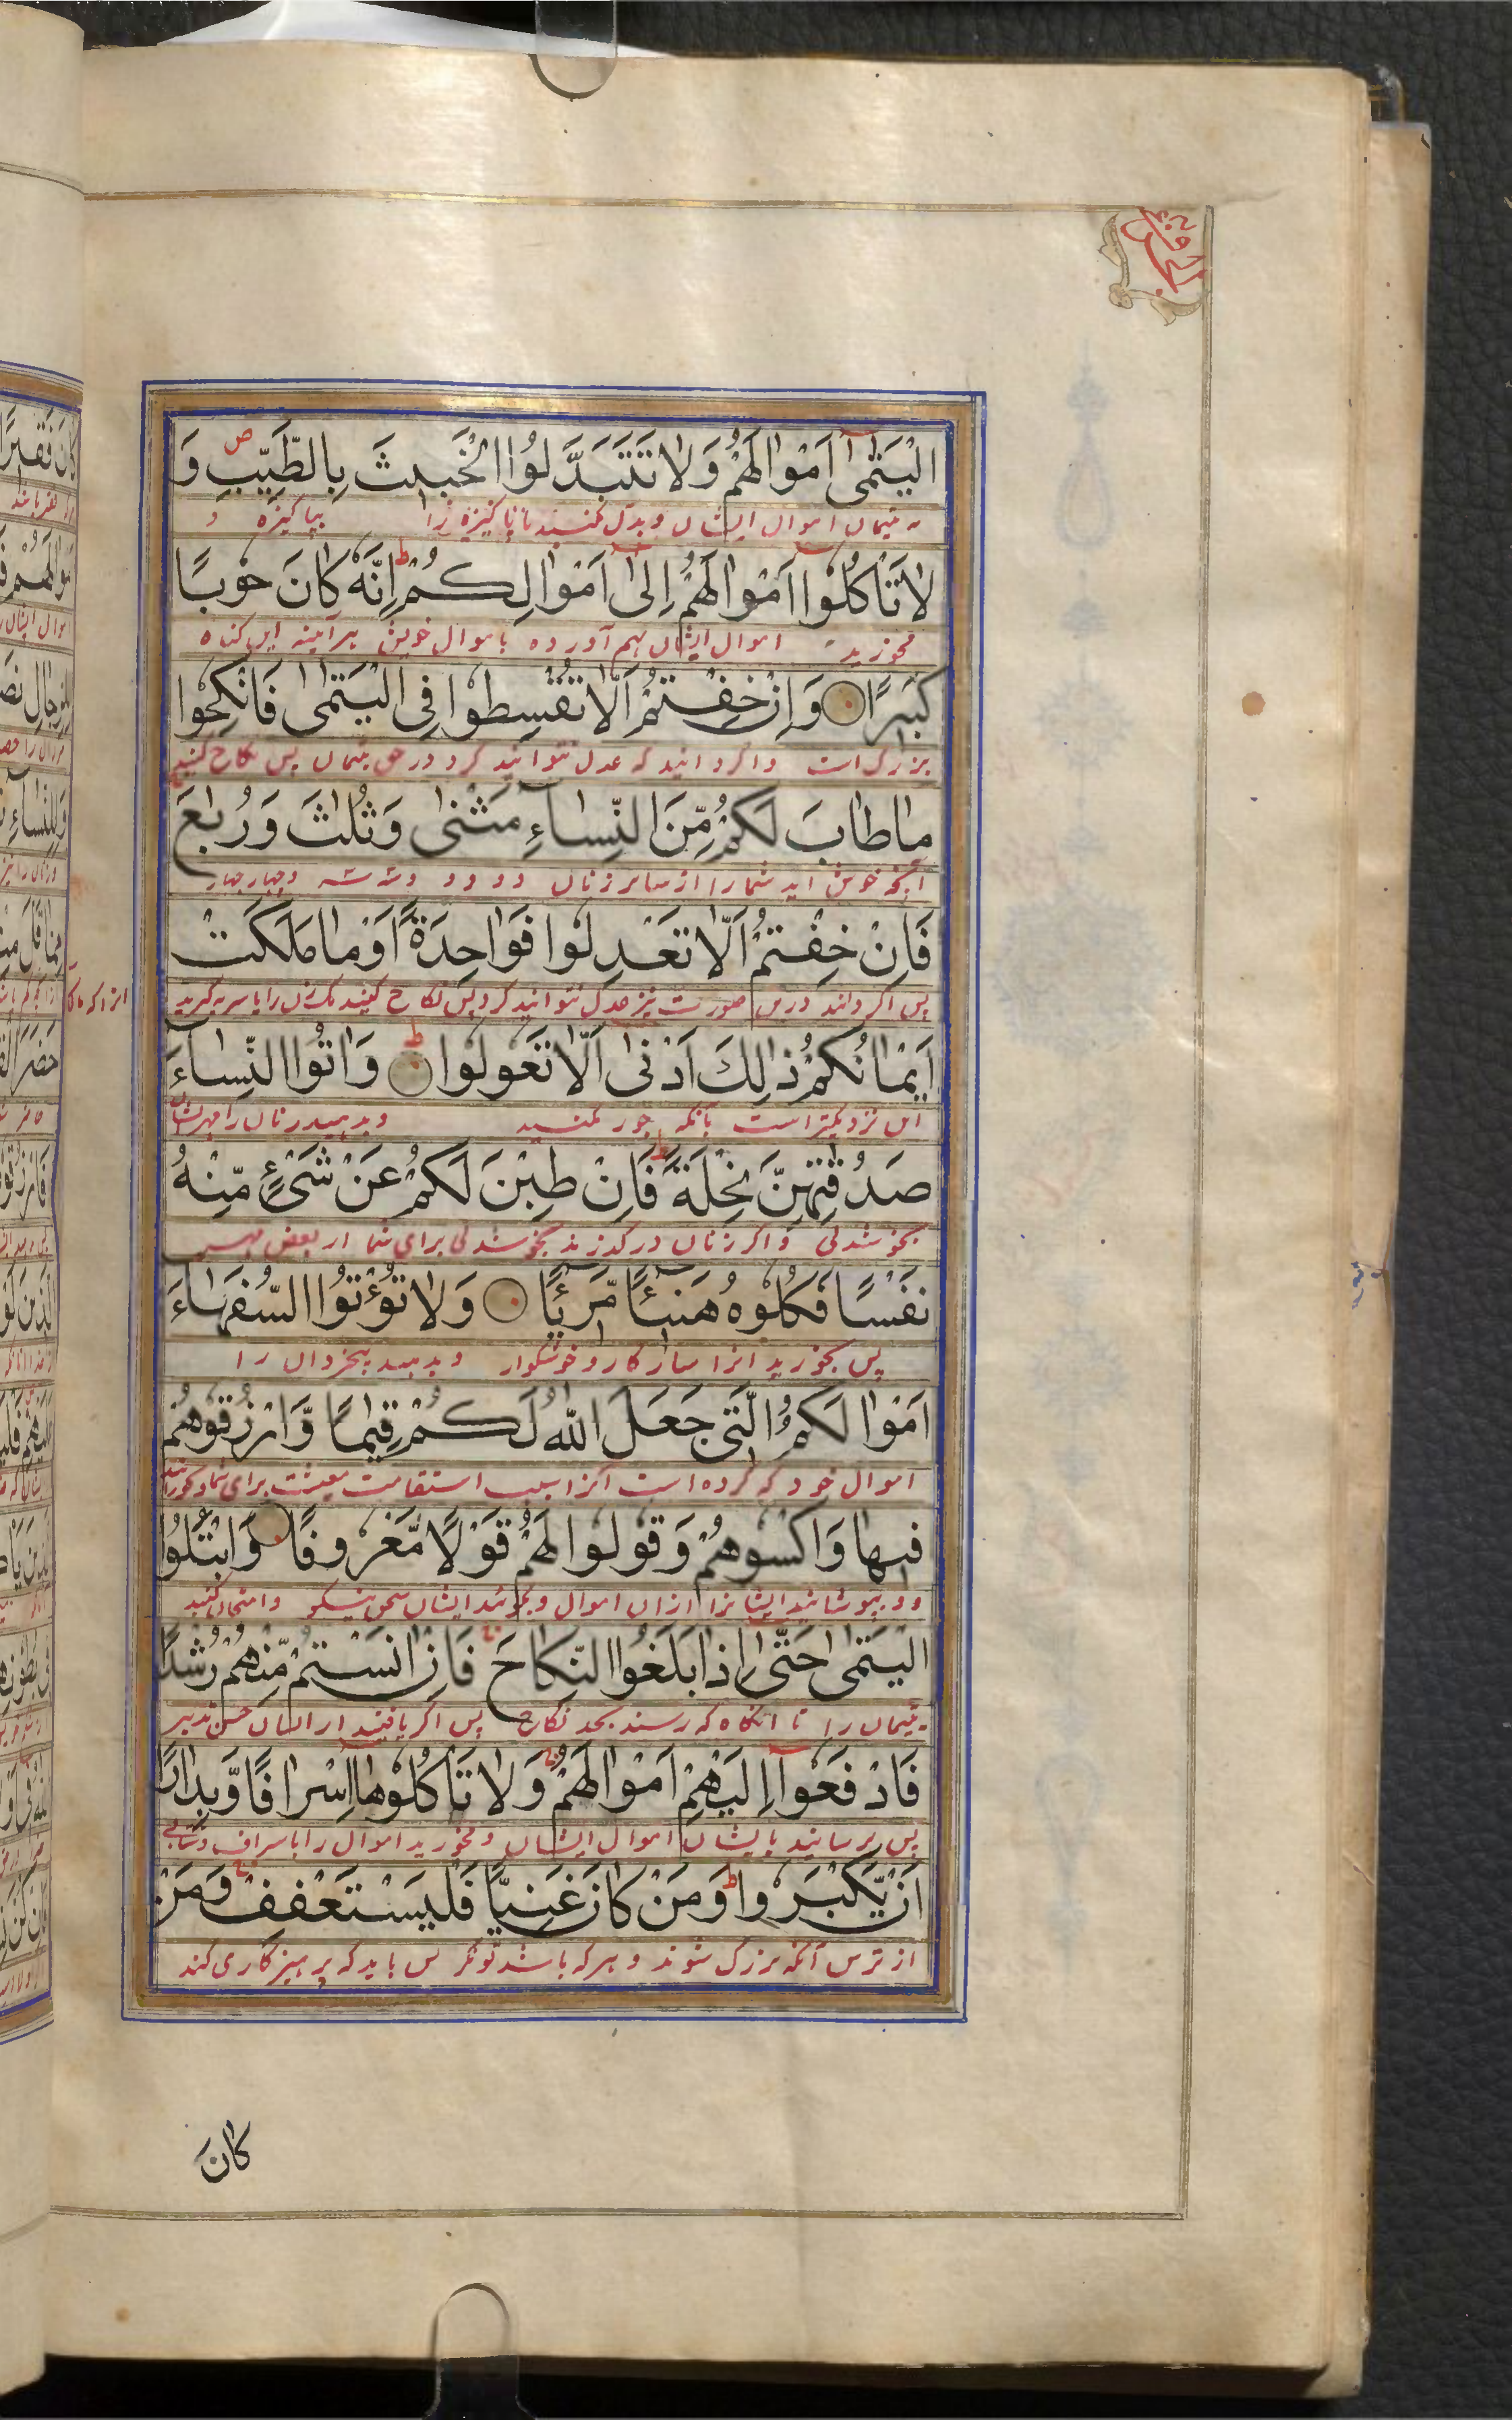 الْيَتٰمٰٓى اَمْوٰالَهُمْ وَلٰا تَتَبَدَّلُوا الْخَبٖيثَ بِالطَّيِّبِ ص وَ
به یتیمان اموال ایشان و بدل مکنید ناپاکیزه را بپاکیزه و
لٰا تَاْكُلُوٓا اَمْوٰالَهُمْ اِلٰٓى اَمْوٰالِكُمْ ط اِنَّهُ كٰانَ حُوبًا
مخورید اموال ایشان بهم آورده باموال خویش هر آئینه این کناه
كَبٖيرًا وَاِنْ خِفْتُمْ اَلّٰا تُقْسِطُوا فِى الْيَتٰمٰى فَانْكِحُوا
بزرک است و اکر دانید که عدل نتوانید کرد در حق یتیمان پس نکاح کنید
مٰا طٰابَ لَكُمْ مِّنَ النِّسٰٓاءِ مَثْنٰى وَثُلٰثَ وَرُبٰعَ
آنچه خوش اید شما را از سایر زنان دو دو و سه سه و چهار چهار
فَاِنْ خِفْتُمْ اَلّٰا تَعْدِلُوا فَوٰاحِدَةً اَوْ مٰا مَلَكَتْ
پس اکر دانند درین صورت نیز عدل نتوانید کرد پس نکاح کنید یک زن را یا سریه کیرید
اَيْمٰانُكُمْ ذٰلِكَ اَدْنٰٓى اَلّٰا تَعُولُوا ط وَاٰتُوا النِّسٰٓاءَ
این نزدیکتر است بانکه جور نکنید و بدهید زنان را مهرشان
صَدُقٰتِهِنَّ نِحْلَةً ط فَاِنْ طِبْنَ لَكُمْ عَنْ شَىْءٍ مِّنْهُ
بخوشدلی و اکر زنان درکذرند بخوشدلی برای شما از بعض مهر
نَفْسًا فَكُلُوهُ هَنٖٓيئًا مَّرٖٓيئًا وَلٰا تُؤْتُوا السُّفَهٰٓاءَ
پس بخورید آنرا سازکار و خوشکوار و بدهید بیخردان را
اَمْوٰالَكُمُ الَّتٖى جَعَلَ اللّٰهُ لَكُمْ قِيٰمًا وَّارْزُقُوهُمْ
اموال خود که کرده است آنرا سبب استقامت معیشت برای شما و بخورانید
فٖيهٰا وَاكْسُوهُمْ وَقُولُوا لَهُمْ قَوْلًا مَّعْرُوفًا وَابْتَلُوا
و بپوشانید ایشانرا ازان اموال و بکوئید ایشان سخن نیکو و امتحان کنید
الْيَتٰمٰى حَتّٰٓى اِذٰا بَلَغُوا النِّكٰاحَ فَاِنْ اٰنَسْتُمْ مِّنْهُمْ رُشْدًا
یتیمان را تا انکاه که رسند بحد نکاح پس اکر یافتید از ایشان حسن تدبیر
فَادْفَعُوٓا اِلَيْهِمْ اَمْوٰالَهُمْ وَلٰا تَاْكُلُوهٰٓا اِسْرٰافًا وَّبِدٰارًا
پس برسانید بایشان اموال ایشان و مخورید اموال را باسراف و شتابی
اَنْ يَّكْبَرُوا ط وَمَنْ كٰانَ غَنِيًّا فَلْيَسْتَعْفِفْ وَمَنْ
از ترس آنکه بزرک شوند و هر که باشد تونکر پس باید که پرهیزکاری کند
كٰانَ